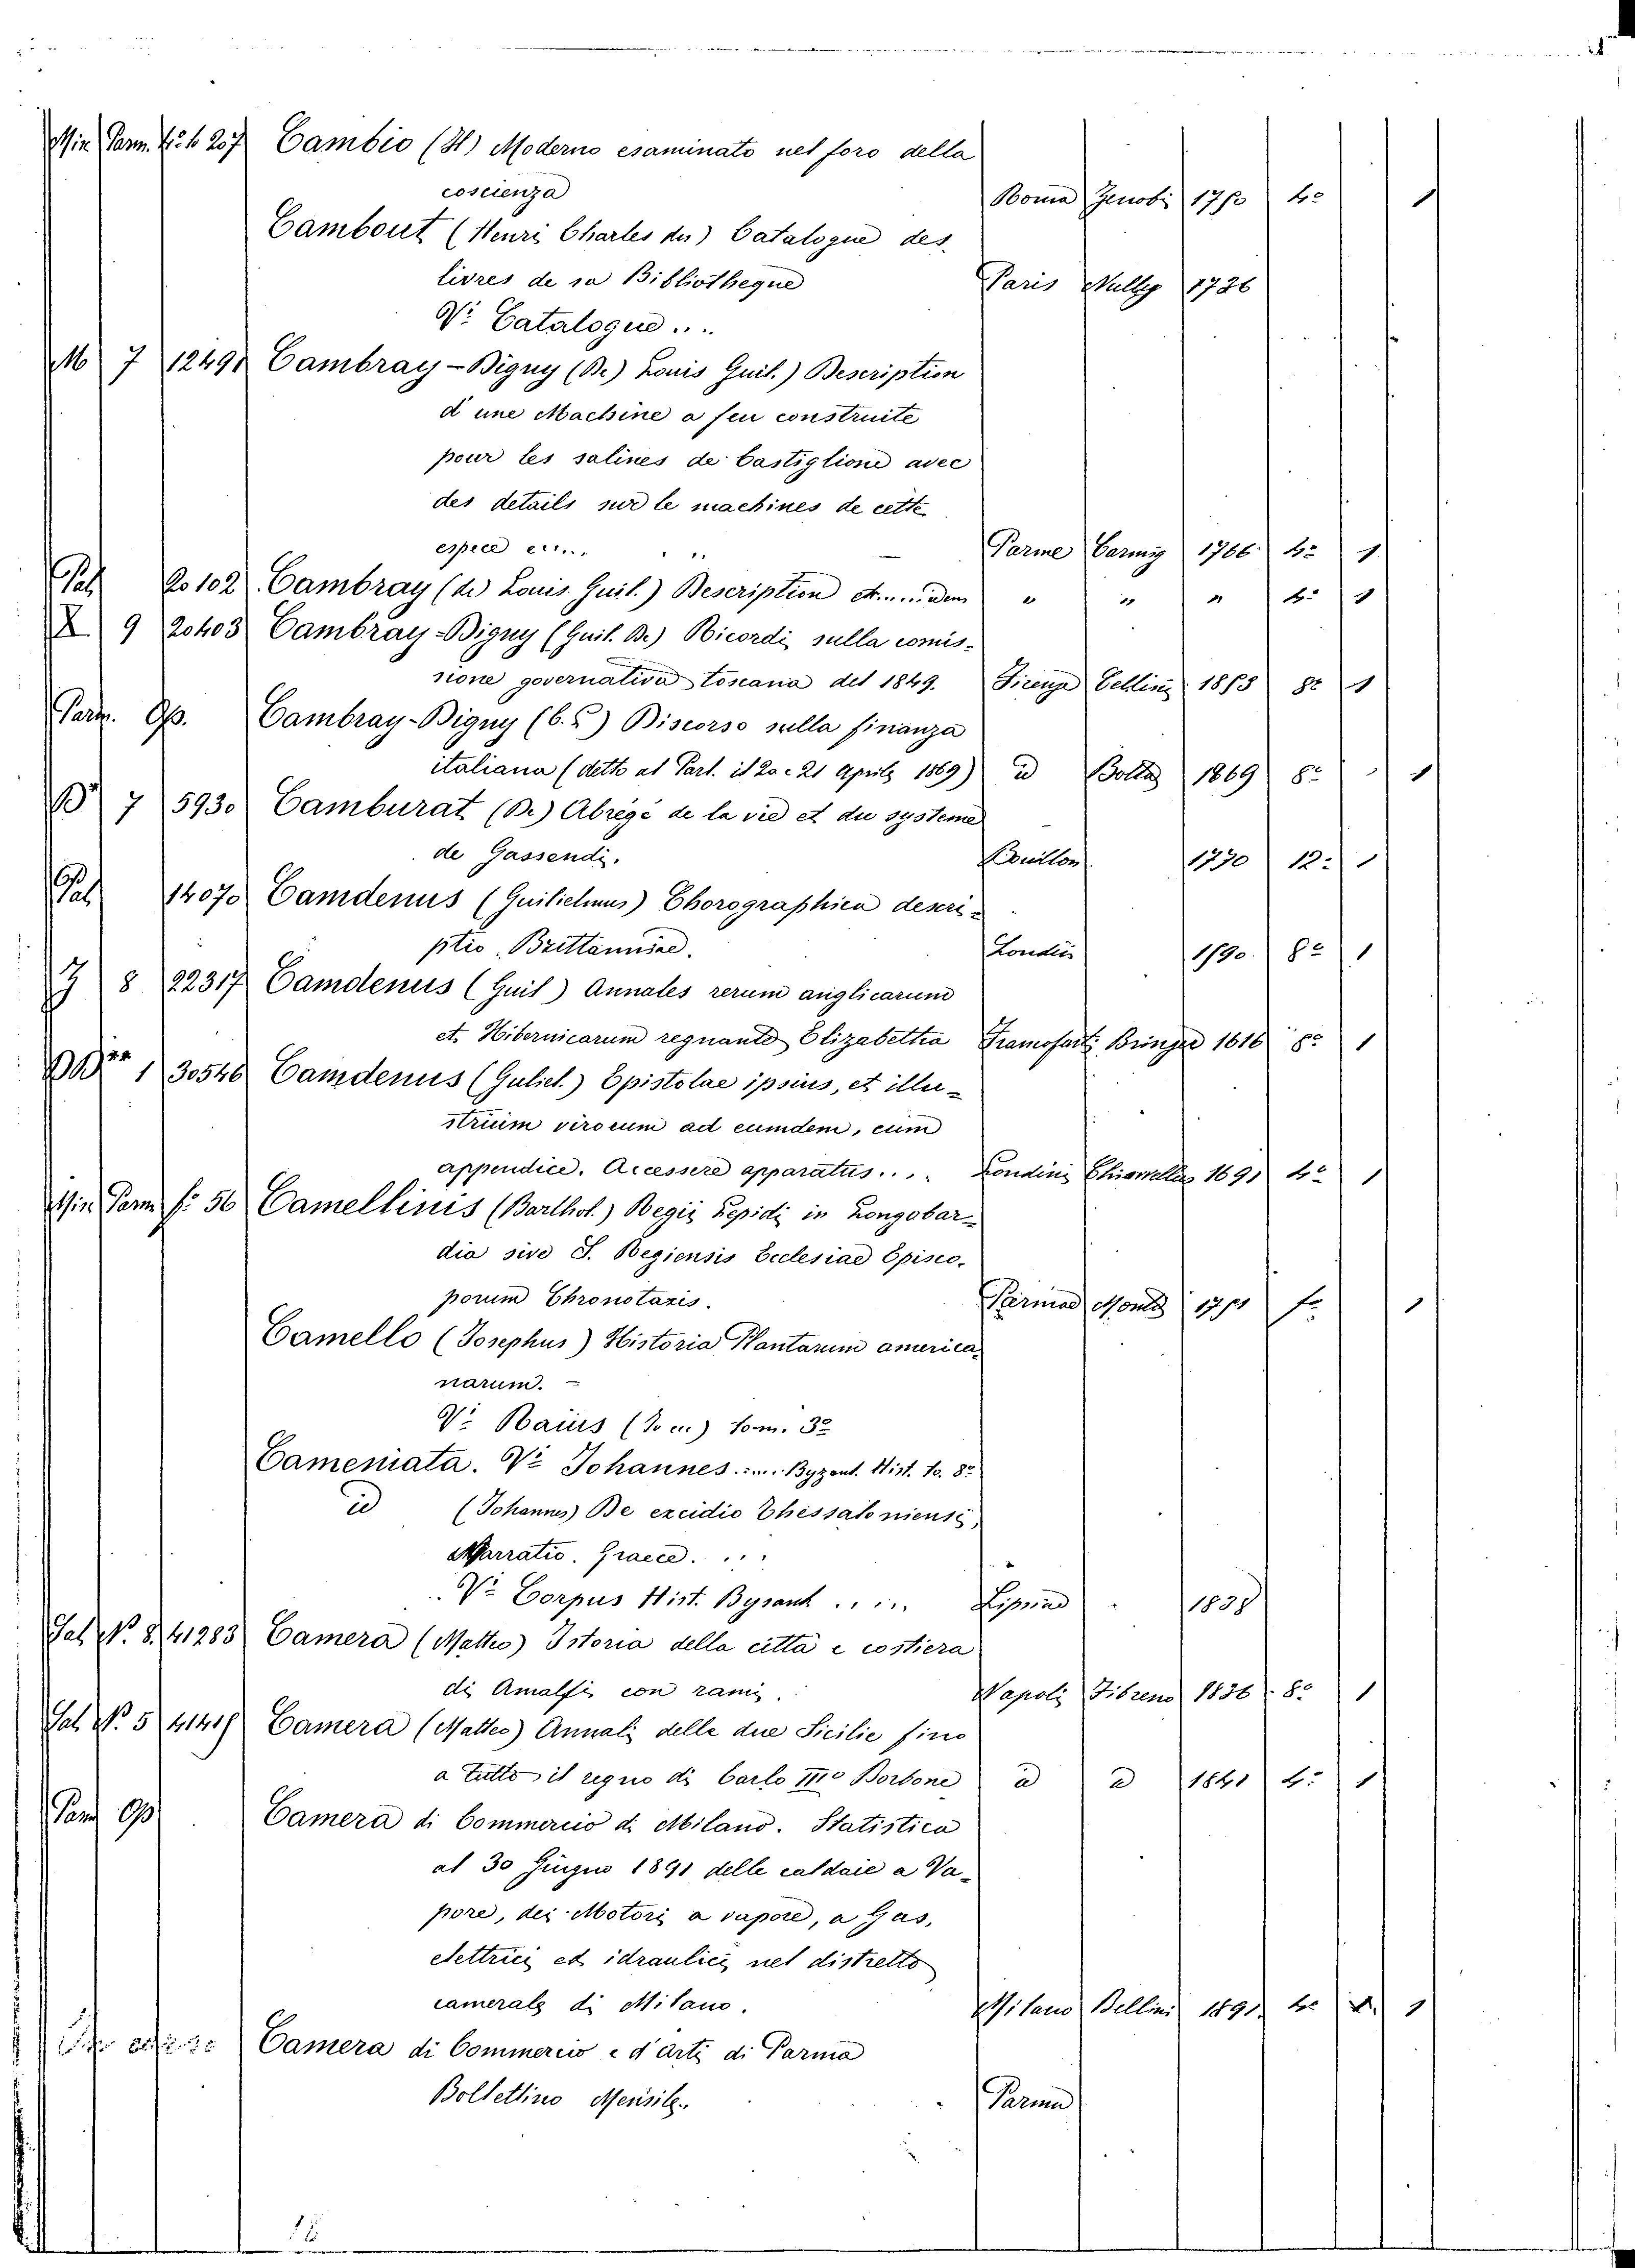 Min Parm. 207 Cambio (Il) Moderno esaminato nel foro della
coscienza Roma Zenobi 4º 1
Cambout (Henri Charles du) Catalogue des
livres de sa Bibliotheque Paris 1726
Vi Catalogue....
M 7 12491 Cambray-Digny (De) Louis Guil.) Description
d une Machine a feu construite
pour les salines de Castiglione avec
des details sur le machines de cette
espece Parme Carmig 1766 4º 1
Pal 20102 Cambray (de Louis Guil.) Description idem " " " 4º 1
X 9 20403 Cambray-Digny (Guil. De) Ricordi sulla comis-
sione governativa toscana del 1849. Firenze Cellini 1853 8º 1
Parm. Op. Cambray-Digny (C. L.) Discorso sulla finanza
italiana (detto al Parl. il 20 e 21 Aprile 1869) id Botta 1869 8º 1
7 5930 Camburat (De) Abregé de la vie et du systeme
de Gassendi. Bouillon 1770 12º 1
Pal 14070 Camdenus (Guilielmus) Chorographica descri-
ptio Brittanniae. Londin 1590 8º 1
8 22317 Camdenus (Guil) Annales rerum anglicarum
et Hibernicarum regnante Elizabetha Bringer 1616 8º 1
1 30546 Camdenus (Guliel.) Epistolae ipsius, et illu-
strium virorum ad eumdem, cum
appendice. Accessere apparatus.... Londini 1691 4º 1
Min Parm fº 56 Camellinis (Barthol.) Regii Lepidi in Longobar-
dia sive S. Regiensis Ecclesiae Episco-
porum Chronotaxis. Parmae Monti fº 1
Camello (Josephus) Historia Plantarum america-
narum. -
Vi Raius tom. 3º
Cameniata. Vi Johannes..... Byzant. Hist. to. 8º
id (Johannes) De excidio Thessaloniensi,
Narratio. Graece. ...
Vi Corpus Hist. Bysant ..... Lipsiae
Sal Nº 8, 41283 Camera (Matteo) Istoria della città e costiera
di Amalfi con rami. Napoli Fibreno 1836 8º 1
Sal Nº 5 Camera (Matteo) Annali delle due Sicilie fino
a tutto il regno di Carlo IIIº Borbone id id 1841 4º 1
Parm Op Camera di Commercio di Milano. Statistica
al 30 Giugno 1891 delle caldaie a Va-
pore, dei Motori a vapore, a Gas,
elettrici ed idraulici nel distretto
camerale di Milano. Milano Bellini 1891 4º 1
Camera di Commercio e d'Arti di Parma
Bollettino Mensile. Parma